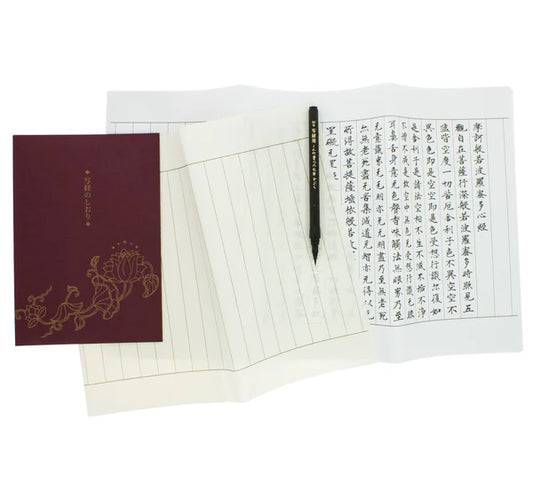 写経のしおり
摩訶般若波羅蜜多心経
觀自在菩薩行深般若波羅蜜多時照見五
蘊皆空度一切苦厄舎利子色不異空空不
異色色即是空空即是色受想行識亦復如
是舎利子是諸法空相不生不滅不垢不浄
不増不減是故空中无色无受想行識无眼
耳鼻舌身意无色聲香味觸法无眼界乃至
无意識界无无明亦无无明盡乃至無老死
亦无老死盡无苦集滅道无智亦无得以无
所得故菩提薩埵依般若
罣礙无罣